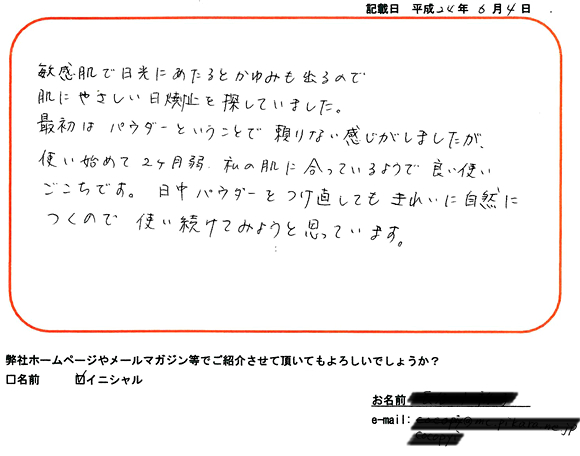 記載日 平成24年 6月4日
敏感肌で日光にあたるとかゆみも出るので
肌にやさしい日焼止を探していました。
最初は パウダーということで 頼りない感じがしましたが、
使い始めて 2ヶ月弱、私の肌に合っているようで 良い使い
ごこちです。 日中パウダーを つけ直しても きれいに自然に
つくので 使い続けてみようと思っています。
弊社ホームページやメールマガジン等でご紹介させて頂いてもよろしいでしょうか？
□名前 ☑イニシャル
お名前
e-mail: